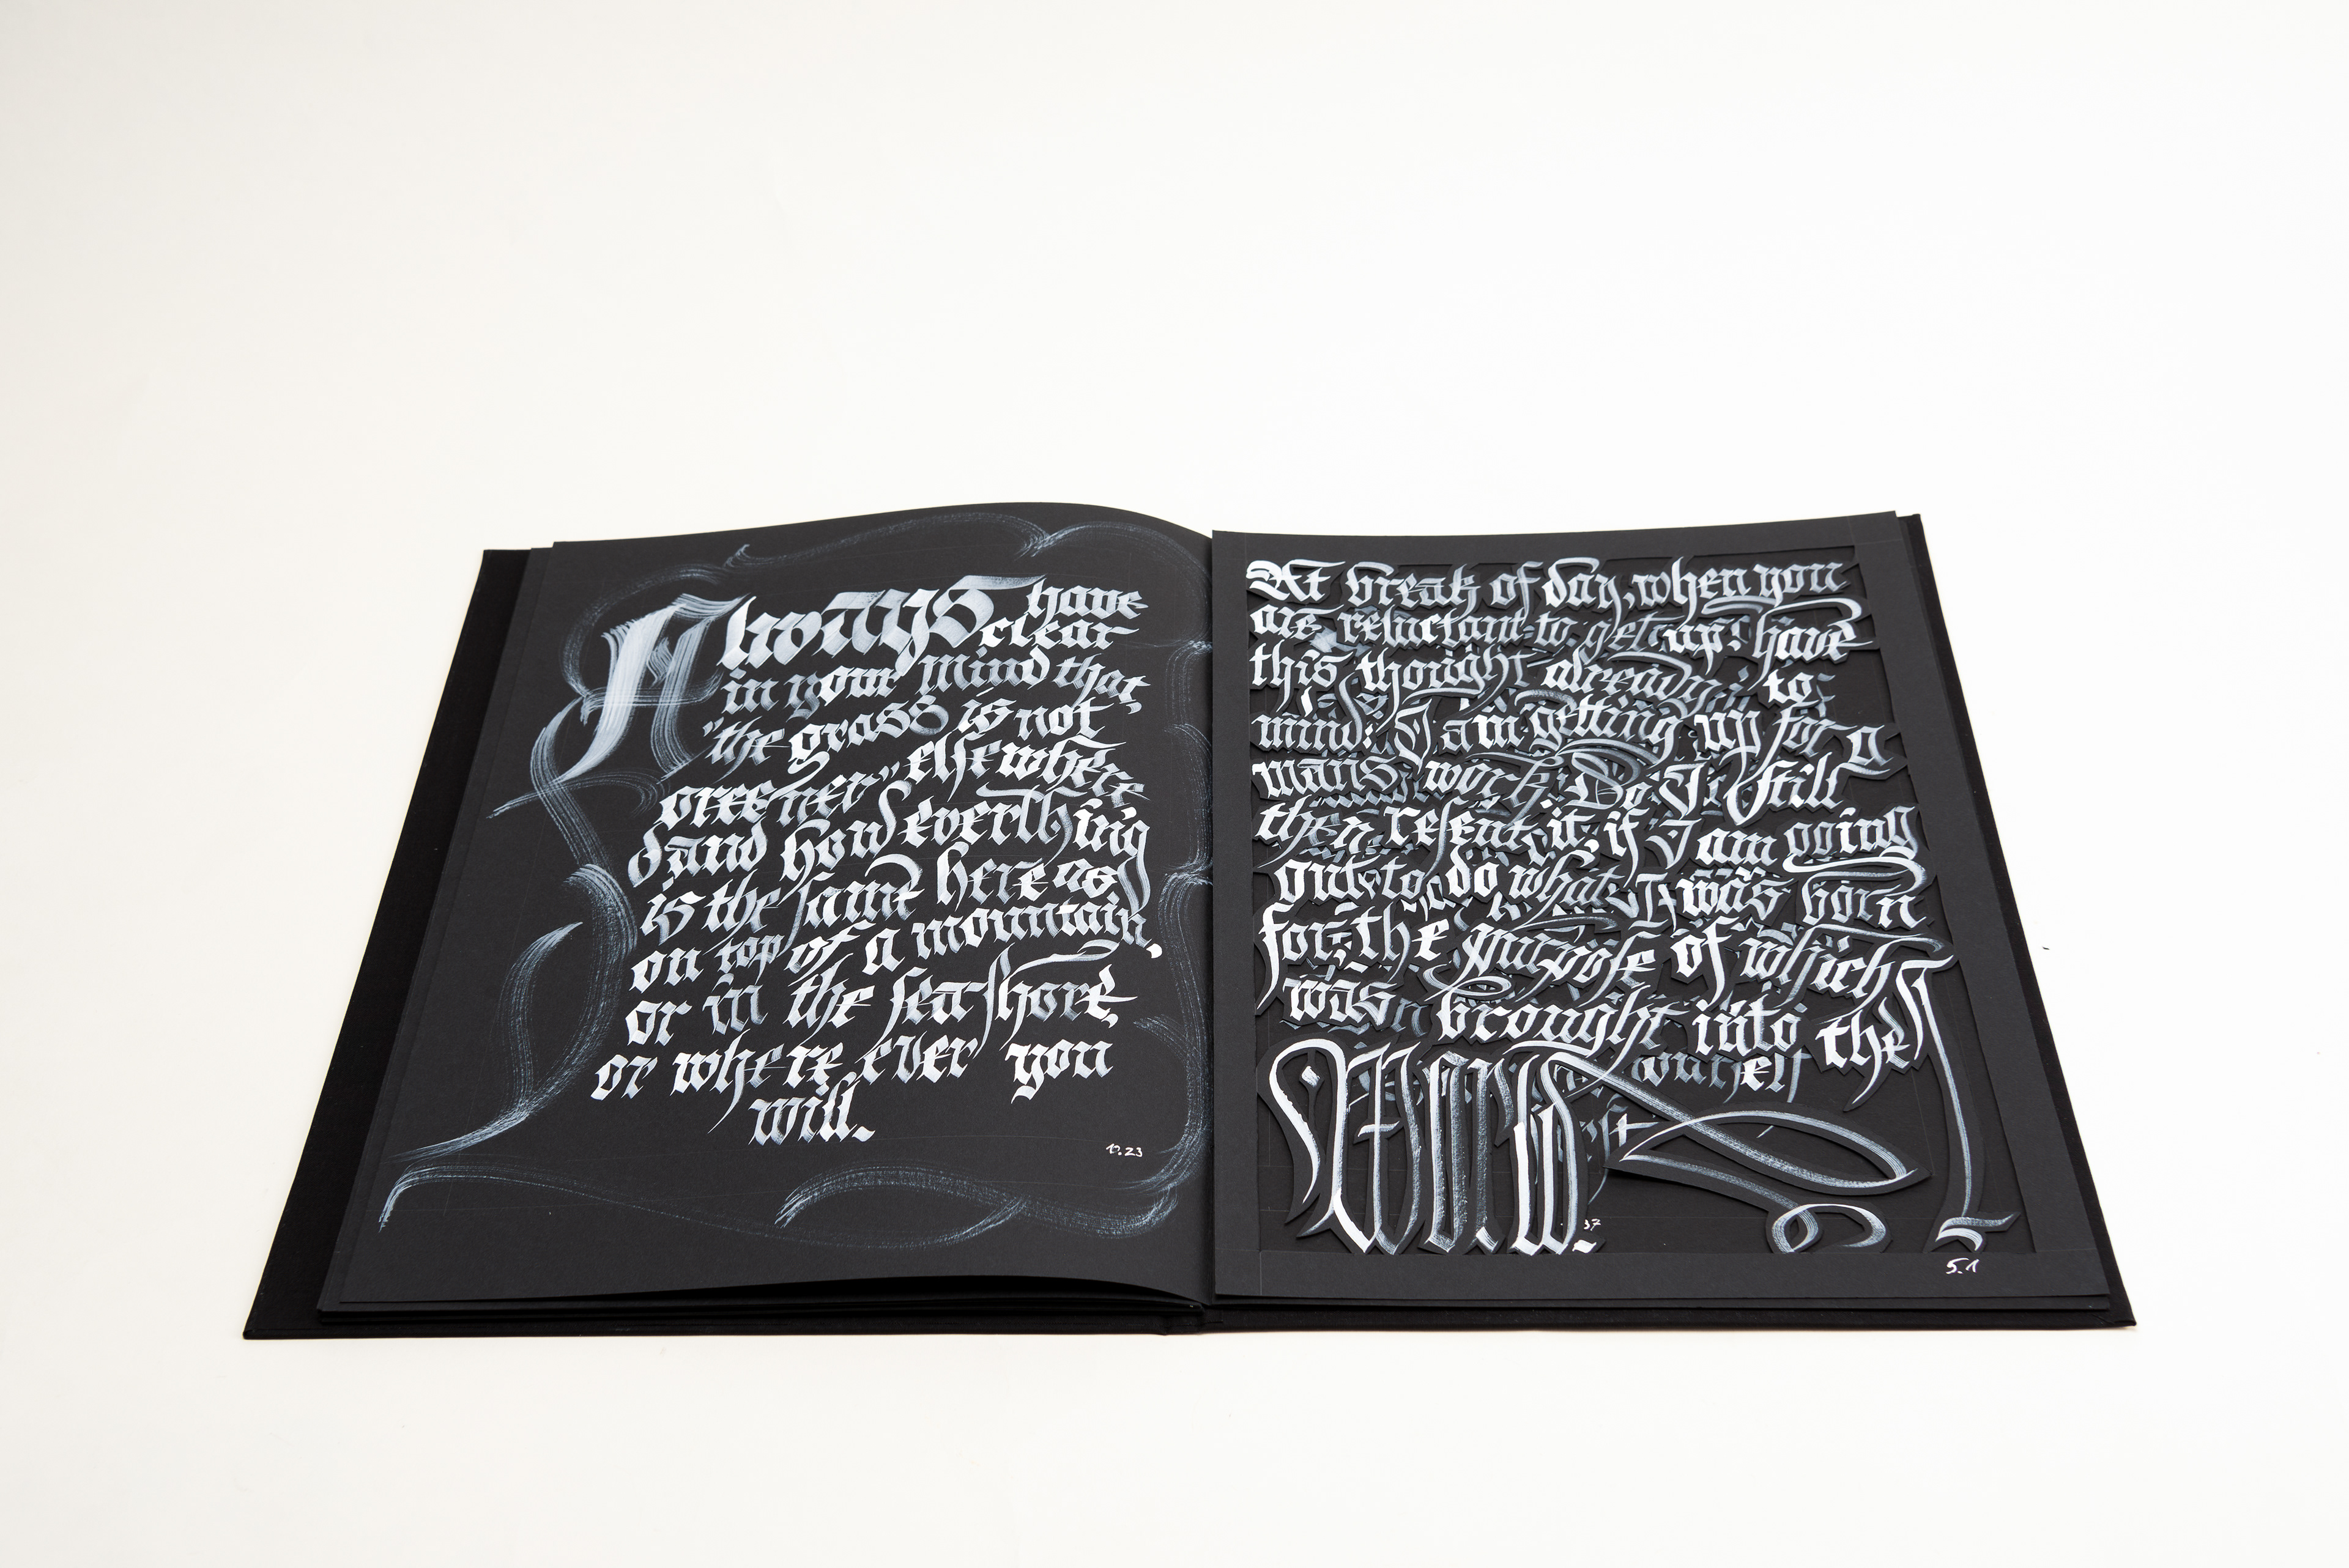 Always have
clear
in your mind that
"the grass is not
greener" elsewhere
and how everthing
is the same here as
on top of a mountain,
or in the seashore,
or where ever you
will.
10.23
At break of day, when you
are reluctant to get up, have
this thought already to
mind: I am getting up for a
man's work. Do I still
then resent it, if I am going
out to do what I was born
for, the purpose of which I
was brought into the
yourself
World.
37
5.1